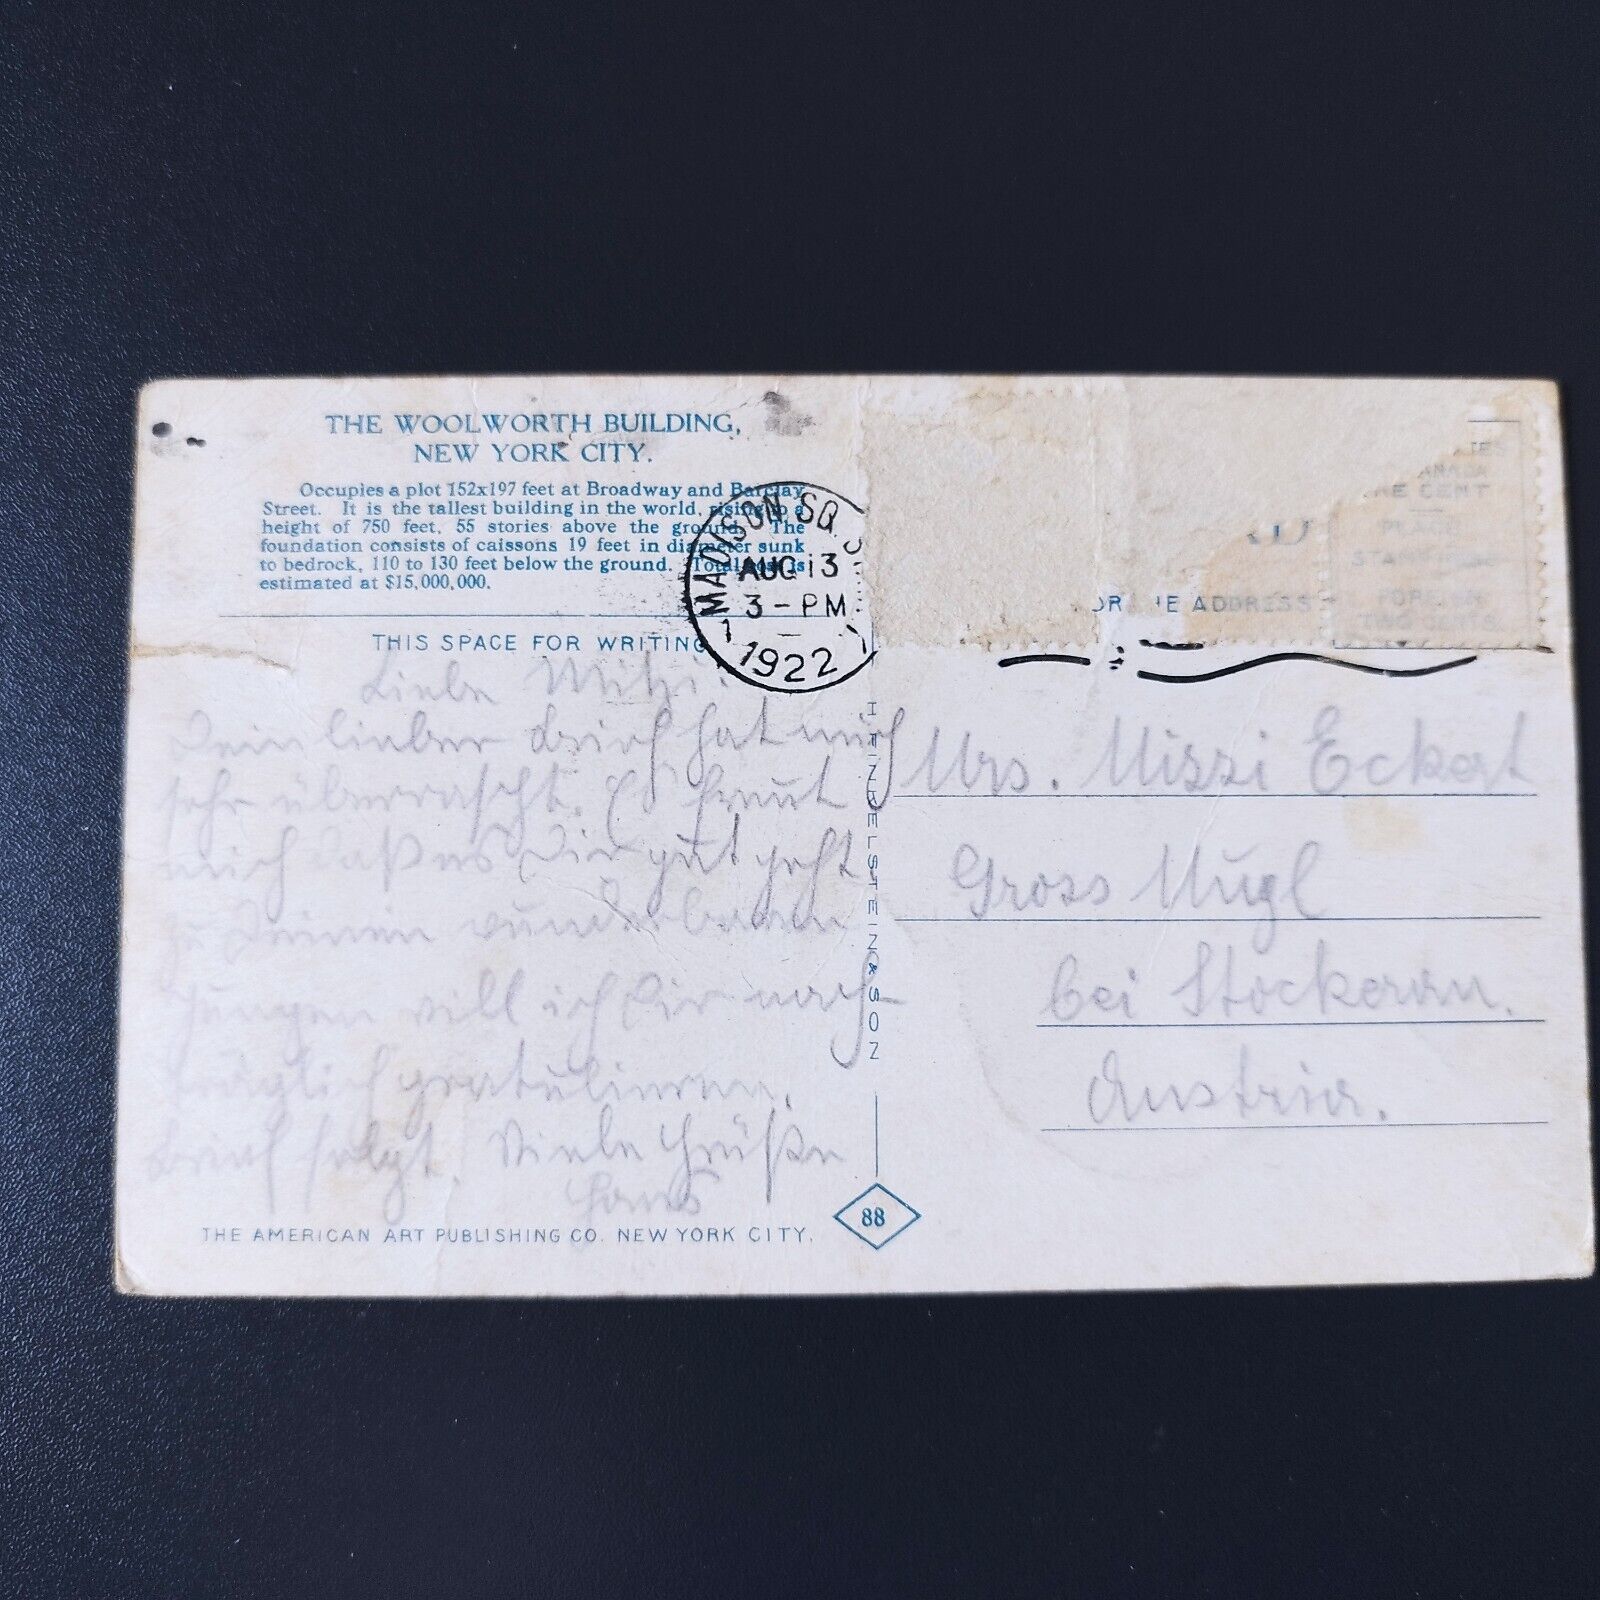 THE WOOLWORTH BUILDING,
NEW YORK CITY.
Occupies a plot 152x197 feet at Broadway and Barclay
Street. It is the tallest building in the world, rising to a
height of 750 feet, 55 stories above the ground. The
foundation consists of caissons 19 feet in diameter sunk
to bedrock, 110 to 130 feet below the ground. Total cost is
estimated at $15,000,000.
THIS SPACE FOR WRITING
MADISON SQ.
AUG 13
3-PM
1922
Liebe Mitzi!
Dein lieber Brief hat mich
sehr überrascht. Es freut
mich daß es Dir gut geht
zu Deinem wunderbaren
Jungen will ich Dir nach
träglich gratulieren.
Brief folgt. Viele Grüße
Hans
THE AMERICAN ART PUBLISHING CO. NEW YORK CITY.
H. FINKELSTEIN & SON
88
ADDRESS
CENT
Mrs. Mizzi Eckert
Gross Mugl
bei Stockerau.
Austria.